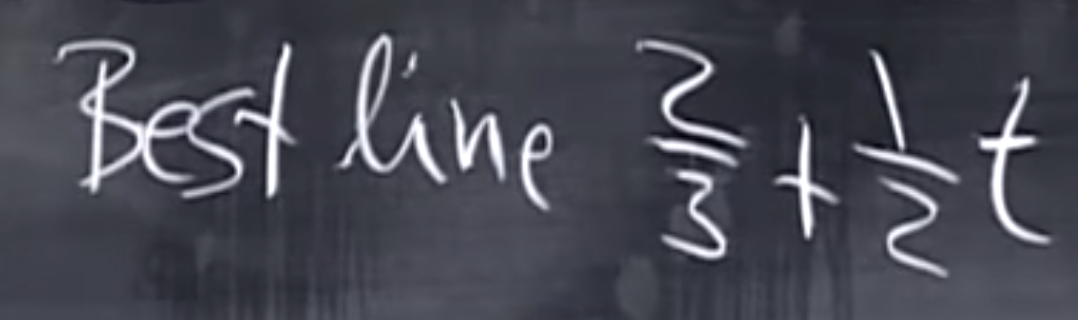 Best line 2/3 + 1/2 t